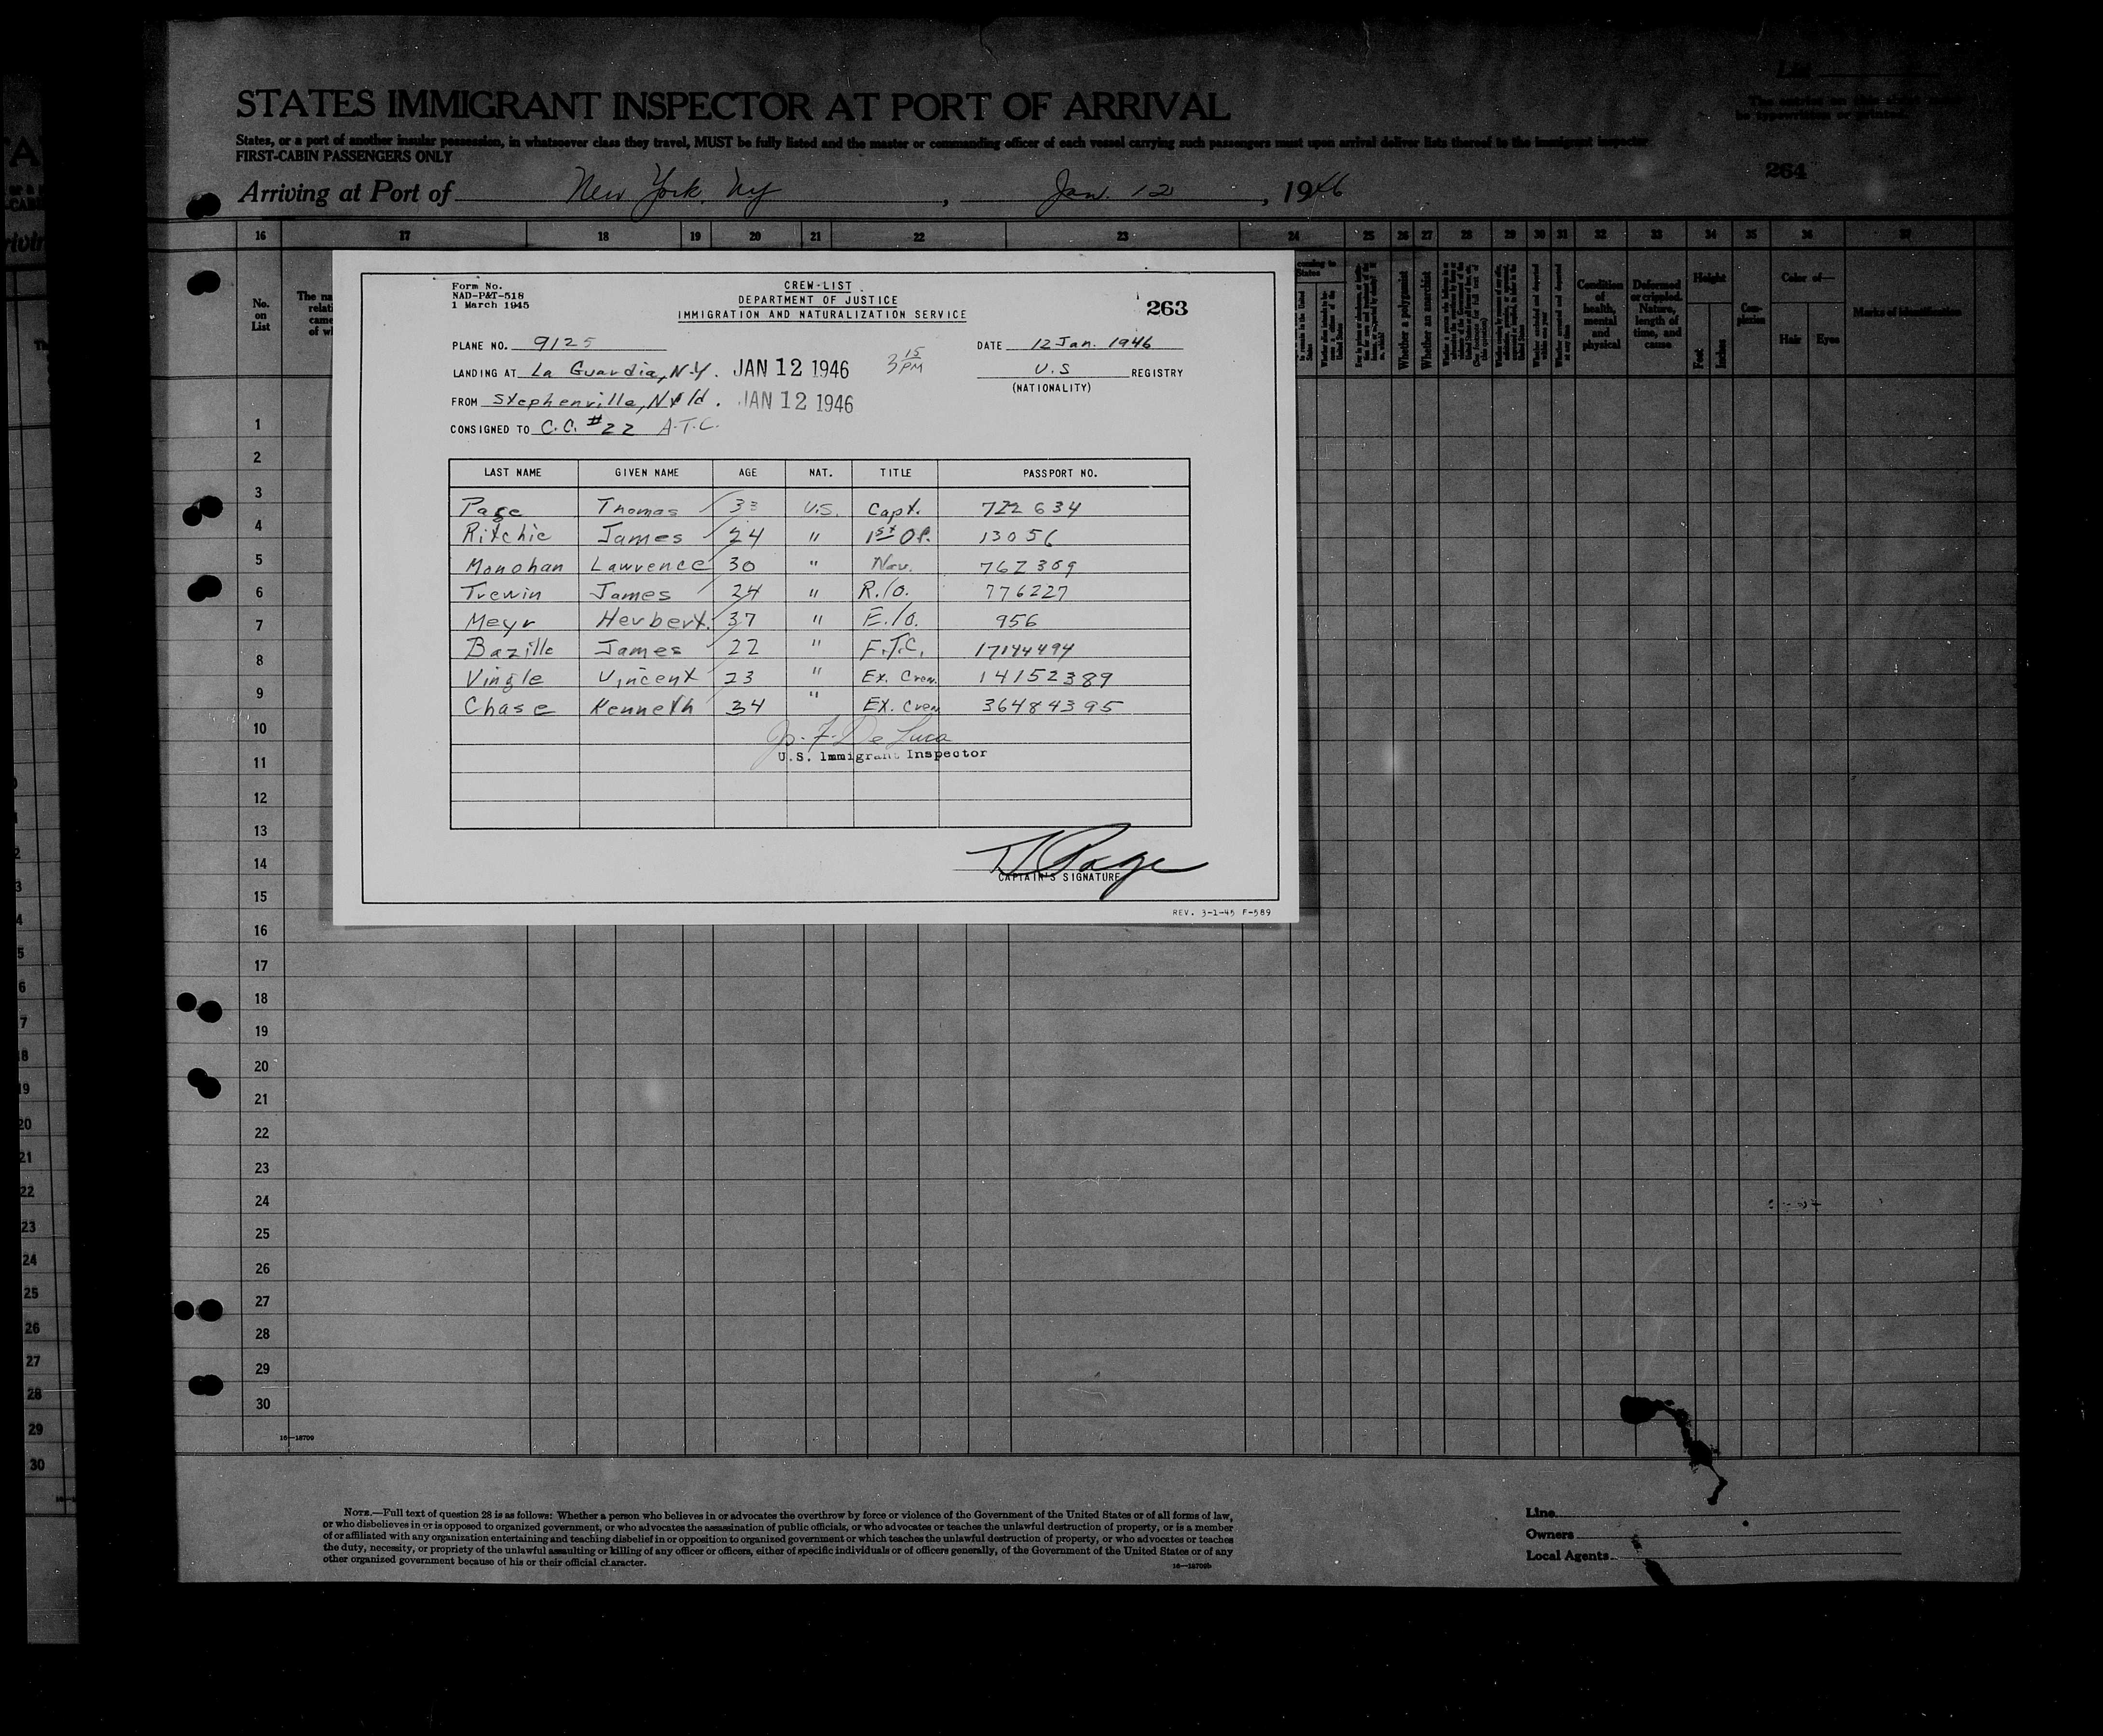 STATES IMMIGRANT INSPECTOR AT PORT OF ARRIVAL
States, or a port of another insular possession, in whatsoever class they travel, MUST be fully listed and the master or commanding officer of each vessel carrying such passengers must upon arrival deliver lists thereof to the immigrant inspector
FIRST-CABIN PASSENGERS ONLY
The entries on this sheet must
be typewritten or printed.
264
Arriving at Port of New York, Ny, Jan. 12, 1946
16 17 18 19 20 21 22 23 24 25 26 27 28 29 30 31 32 33 34 35 36 37
No. on List
Whether a polygamist
Whether an anarchist
Condition of health, mental and physical
Deformed or crippled. Nature, length of time, and cause
Height
Feet Inches
Complexion
Color of—
Hair Eyes
Marks of identification
Form No.
NAD-P&T-518
1 March 1945
CREW-LIST
DEPARTMENT OF JUSTICE
IMMIGRATION AND NATURALIZATION SERVICE
263
PLANE NO. 9125
DATE 12 Jan. 1946
LANDING AT La Guardia, N.Y. JAN 12 1946 3 15 PM
U.S REGISTRY
(NATIONALITY)
FROM Stephenville, Nfld. JAN 12 1946
CONSIGNED TO C.C. #22 A.T.C.
LAST NAME GIVEN NAME AGE NAT. TITLE PASSPORT NO.
Page Thomas 33 U.S. Capt. 722634
Ritchie James 24 " 1st Of. 13056
Monohan Lawrence 30 " Nav. 762309
Trewin James 24 " R./O. 776227
Meyr Herbert. 37 " E./O. 956
Bazille James 22 " F.T.C. 17144494
Vingle Vincent 23 " Ex. Crew 14152389
Chase Kenneth 34 " Ex. Crew 36484395
Jo. F. De Luca
U.S. Immigrant Inspector
T Page
CAPTAIN'S SIGNATURE
REV. 3-1-45 F-589
1
2
3
4
5
6
7
8
9
10
11
12
13
14
15
16
17
18
19
20
21
22
23
24
25
26
27
28
29
30
16—18709
NOTE.—Full text of question 28 is as follows: Whether a person who believes in or advocates the overthrow by force or violence of the Government of the United States or of all forms of law,
or who disbelieves in or is opposed to organized government, or who advocates the assassination of public officials, or who advocates or teaches the unlawful destruction of property, or is a member
of or affiliated with any organization entertaining and teaching disbelief in or opposition to organized government or which teaches the unlawful destruction of property, or who advocates or teaches
the duty, necessity, or propriety of the unlawful assaulting or killing of any officer or officers, either of specific individuals or of officers generally, of the Government of the United States or of any
other organized government because of his or their official character.
16—18709b
Line
Owners
Local Agents